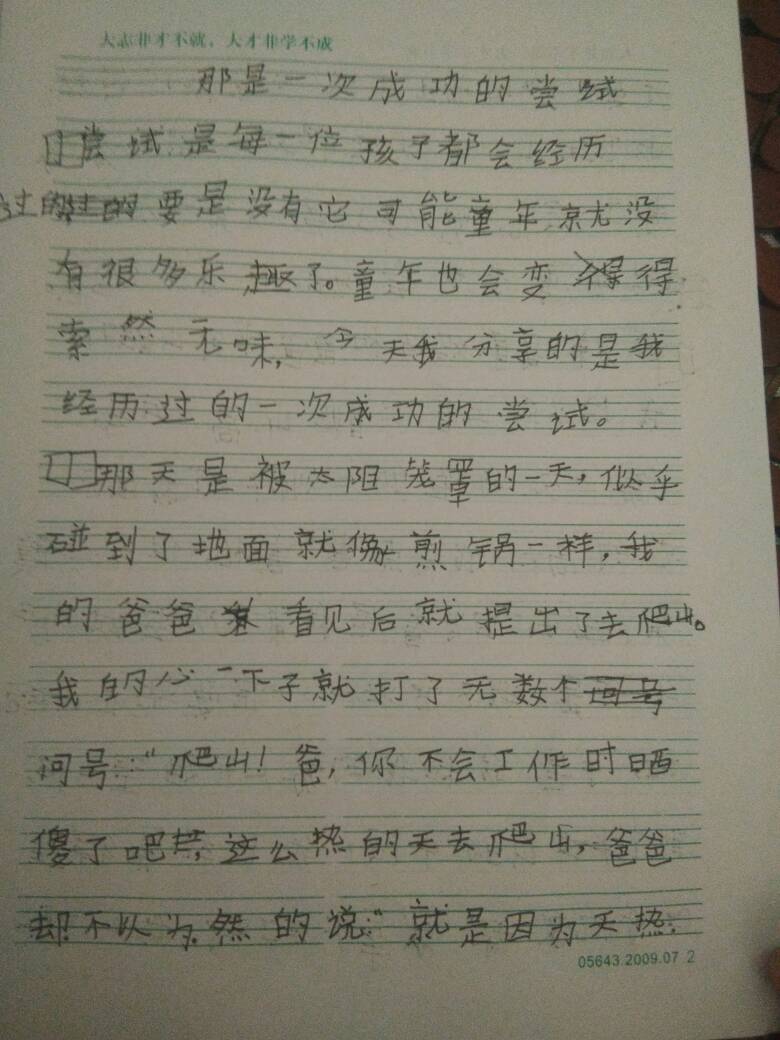 大志非才不就，大才非学不成
那是一次成功的尝试
尝试是每一位孩子都会经历
过的过的要是没有它可能童年就没
有很多乐趣了。童年也会变得得
索然无味，今天我分享的是我
经历过的一次成功的尝试。
那天是被太阳笼罩的一天，似乎
碰到了地面就像煎锅一样，我
的爸爸看见后就提出了去爬山。
我的心一下子就打了无数个问号
问号："爬山！爸，你不会工作时晒
傻了吧，这么热的天去爬山，爸爸
却不以为然的说："就是因为天热
05643.2009.07 2